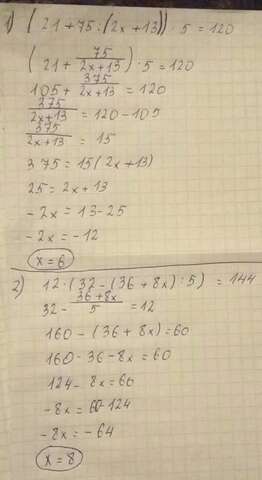 1) (21+75:(2x+13))·5=120
(21+75/(2x+13))·5=120
105+375/(2x+13)=120
375/(2x+13)=120-105
375/(2x+13)=15
375=15(2x+13)
25=2x+13
-2x=13-25
-2x=-12
x=6
2) 12·(32-(36+8x):5)=144
32-(36+8x)/5=12
160-(36+8x)=60
160-36-8x=60
124-8x=60
-8x=60-124
-8x=-64
x=8